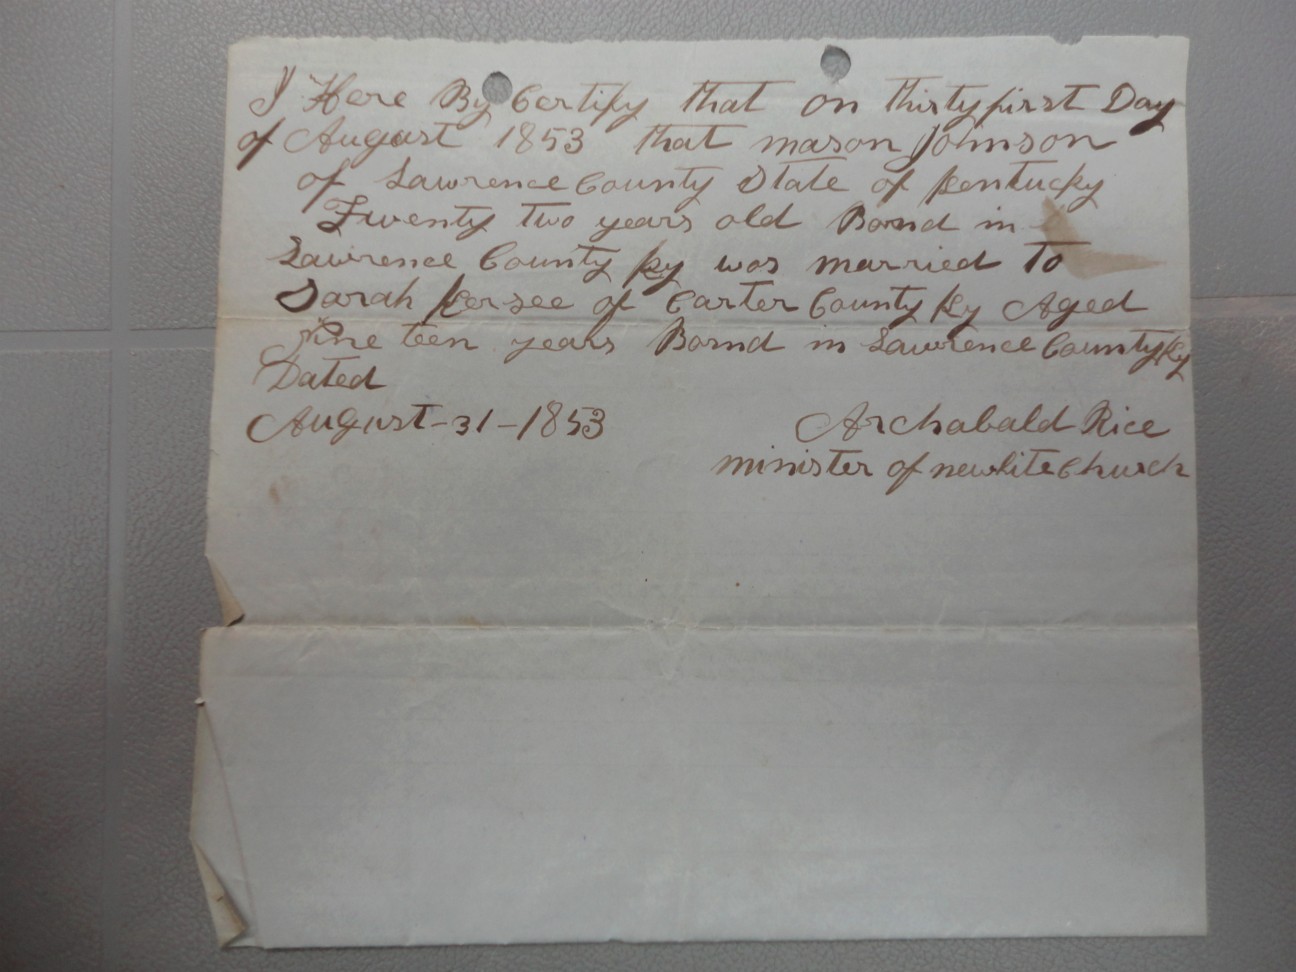 I Here By Certify that on thirtyfirst Day
of August 1853 that mason Johnson
of Lawrence County State of Kentucky
Twenty two years old Bornd in
Lawrence County Ky was married to
Sarah Kersee of Carter County Ky Aged
Nine teen years Bornd in Lawrence County Ky
Dated
August-31-1853 Archabald Rice
minister of newlite Church